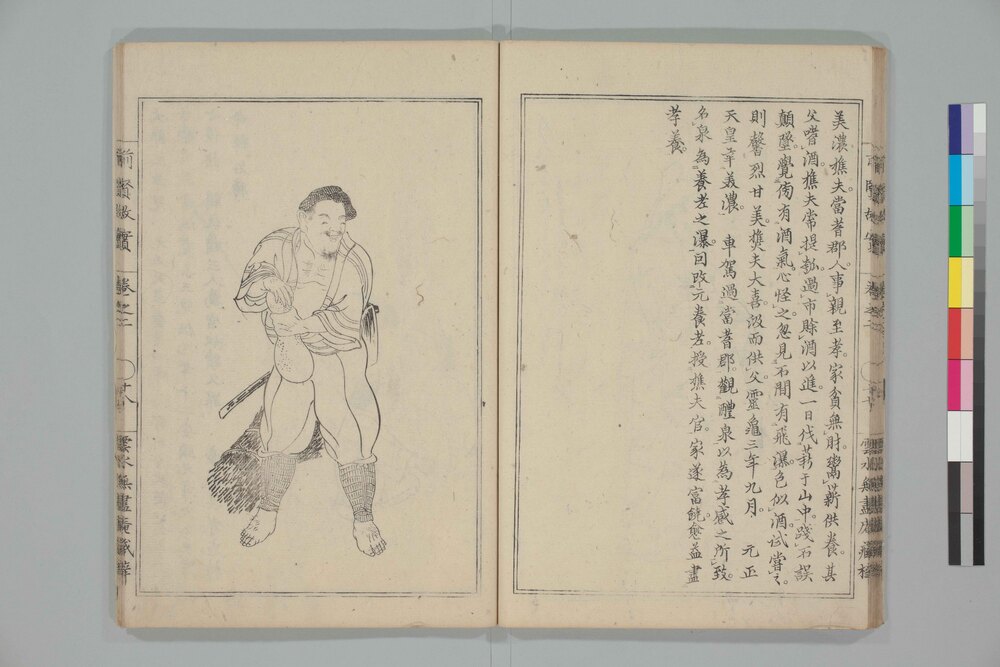 美濃樵夫當耆郡人事親至孝家貧無財鬻薪供養其
父嗜酒樵夫常提瓢過市賖酒以進一日伐薪于山中踐石誤
顛墜覺傍有酒氣心怪之忽見石間有飛瀑色似酒試嘗之
則馨烈甘美樵夫大喜汲而供父靈龜三年九月 元正
天皇幸美濃 車駕過當耆郡觀醴泉以為孝感之所致
名泉為養老之瀑回改元養老授樵夫官家遂富饒愈益盡
孝養
前賢故實 卷之二